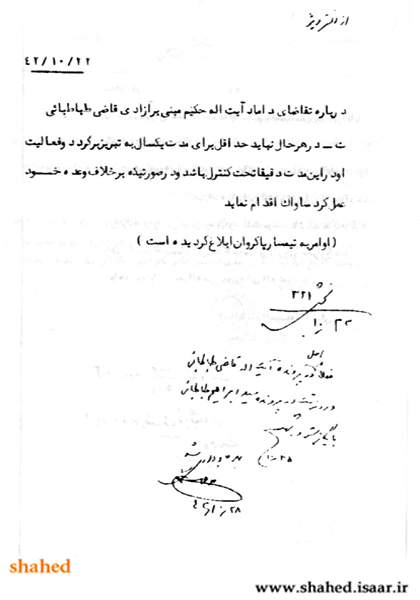 از دفتر ویژه
۴۲/۱۰/۲۲
درباره تقاضای داماد آیت اله حکیم مبنی برآزادی قاضی طباطبائی
ت ــ درهرحال نباید حداقل برای مدت یکسال به تبریز برگردد وفعالیت
اودراین مدت دقیقا تحت کنترل باشد ودرصورتیکه برخلاف وعده خـــود
عمل کرد ساواك اقدام نماید
(اوامربه تیمسارپاکروان ابلاغ گردیده است)
۳۲۱
اصل
در پرونده آیت اله قاضی طباطبائی
در پرونده سید ابراهیم طباطبائی
shahed
www.shahed.isaar.ir